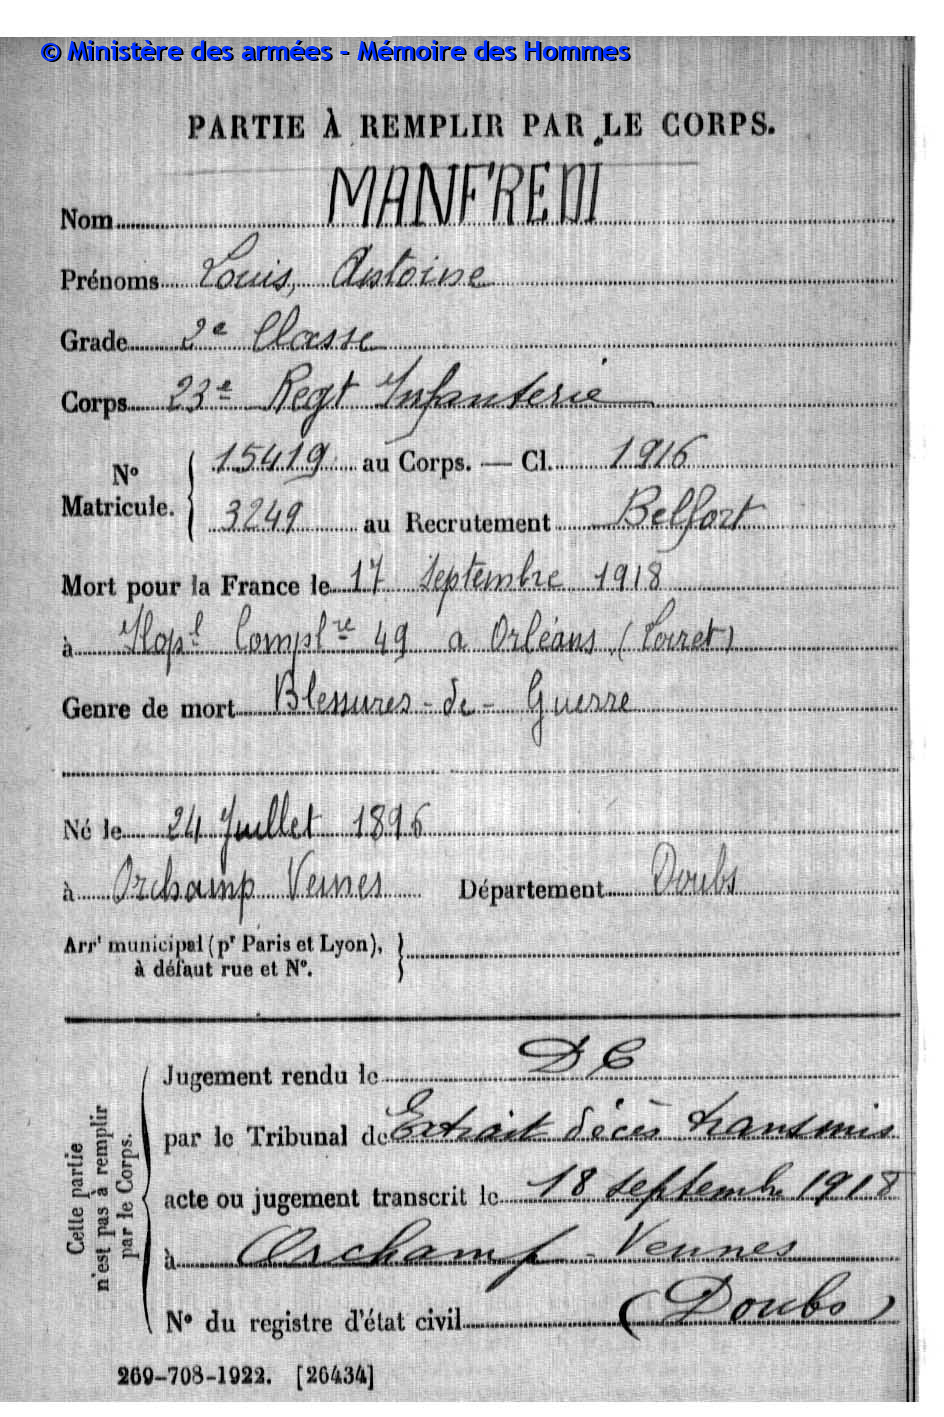 © Ministère des armées - Mémoire des Hommes
PARTIE À REMPLIR PAR LE CORPS.
Nom MANFREDI
Prénoms Louis, Antoine
Grade 2e Classe
Corps 23e Regt Infanterie
N° Matricule. 15419 au Corps. — Cl. 1916
3249 au Recrutement Belfort
Mort pour la France le 17 Septembre 1918
à Hopl Complre 49 a Orléans (Loiret)
Genre de mort Blessures-de-Guerre
Né le 24 Juillet 1896
à Orchamp Vennes Département Doubs
Arrt municipal (pr Paris et Lyon),
à défaut rue et N°.
Cette partie
n'est pas à remplir
par le Corps.
Jugement rendu le DC
par le Tribunal de Extrait décès transmis
acte ou jugement transcrit le 18 septembre 1918
à Orchamp-Vennes
N° du registre d'état civil (Doubs)
269-708-1922. [26434]